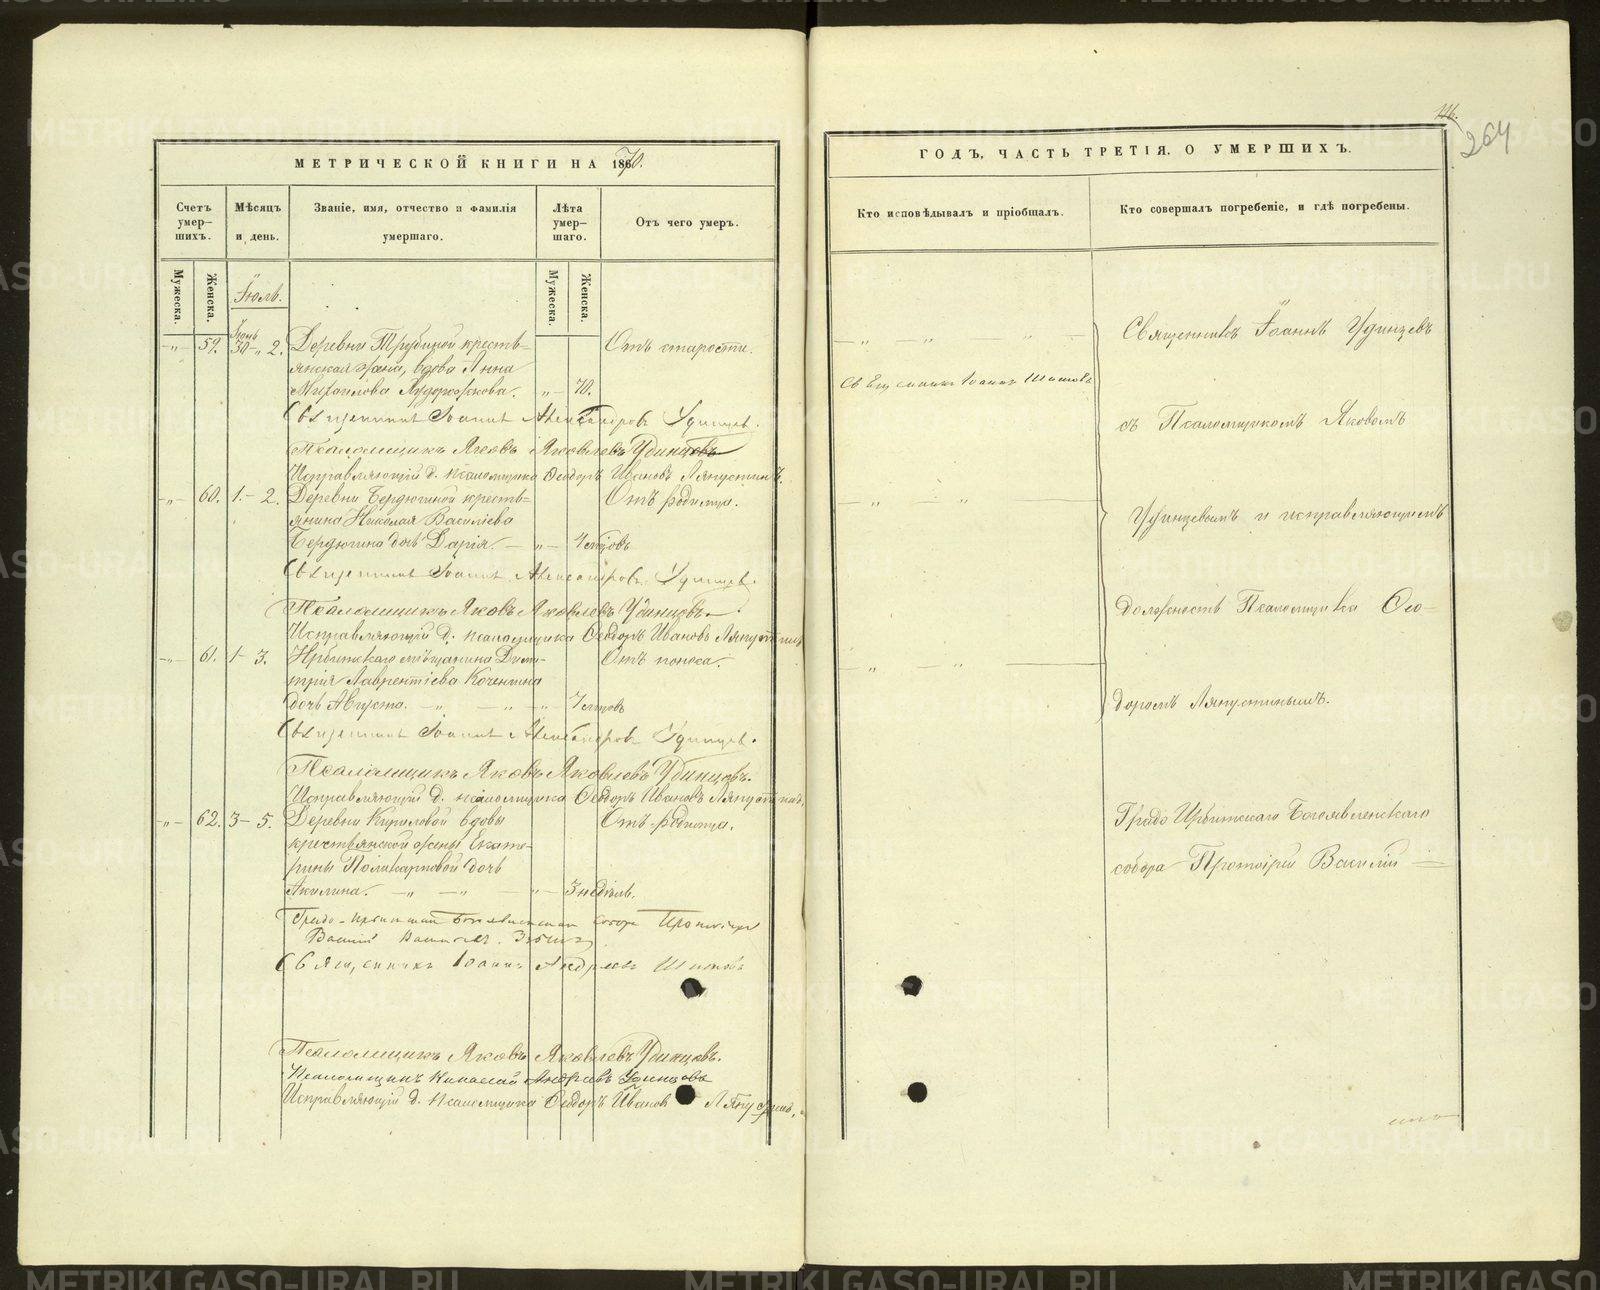 МЕТРИЧЕСКОЙ КНИГИ НА 1870.
Счетъ умер-шихъ.
Мѣсяцъ и день.
Званіе, имя, отчество и фамилія умершаго.
Лѣта умер-шаго.
Отъ чего умеръ.
Мужеска.
Женска.
Мужеска.
Женска.
Іюль.
Іюнь
—„— 59. 30—„ 2. Деревни Трубиной кресть- Отъ старости.
янская жена, вдова Анна
Михайлова — „ — 70.
Священникъ Іоаннъ Александровъ Удинцев.
Псаломщикъ Яковъ Яковлевъ Удинцовъ
Исправляющій д. псаломщика Ѳеодоръ Ивановъ Ляпустинъ.
—„— 60. 1.— 2. Деревни Бердюгиной кресть- Отъ родимца.
янина Николая Василіева
Бердюгина дочь Дарія. — „ —
Священникъ Іоаннъ Александровъ Удинцев.
Псаломщикъ Яковъ Яковлевъ Удинцовъ.
Исправляющій д. псаломщика Ѳеодоръ Ивановъ Ляпустинъ
—„— 61. 1— 3. Ирбитскаго мѣщанина Дими- Отъ поноса.
трія Лаврентіева Коченгина
дочь Августа. — „ — „ — „ —
Священникъ Іоаннъ Александровъ Удинцев.
Псаломщикъ Яковъ Яковлевъ Удинцовъ.
Исправляющій д. псаломщика Ѳеодоръ Ивановъ Ляпустинъ,
—„— 62. 3— 5. Деревни Кириловой вдовы Отъ родимца.
крестьянской жены Екате-
рины Поликарповой дочь
Акилина. — „ — „ — „ — 3 недѣль.
Градо-Ирбитскаго Богоявленскаго собора Протоіерей
Василій
Священникъ Іоаннъ Андреевъ Шишовъ
Псаломщикъ Яковъ Яковлевъ Удинцовъ.
Псаломщикъ Николай Андреевъ Удинцовъ
Исправляющій д. псаломщика Ѳеодоръ Иванов Ляпустинъ.
116.
264
ГОДЪ, ЧАСТЬ ТРЕТІЯ. О УМЕРШИХЪ.
Кто исповѣдывалъ и пріобщалъ.
Кто совершалъ погребеніе, и гдѣ погребены.
Священникъ Іоаннъ Удинцевъ
Священникъ Іоаннъ Шишовъ
съ Псаломщикомъ Яковомъ
Удинцевымъ и исправляющимъ
должность Псаломщика Ѳео-
доромъ Ляпустинымъ.
Градо Ирбитскаго Богоявленскаго
собора Протоіерей Василій
METRIKI.GASO-URAL.RU